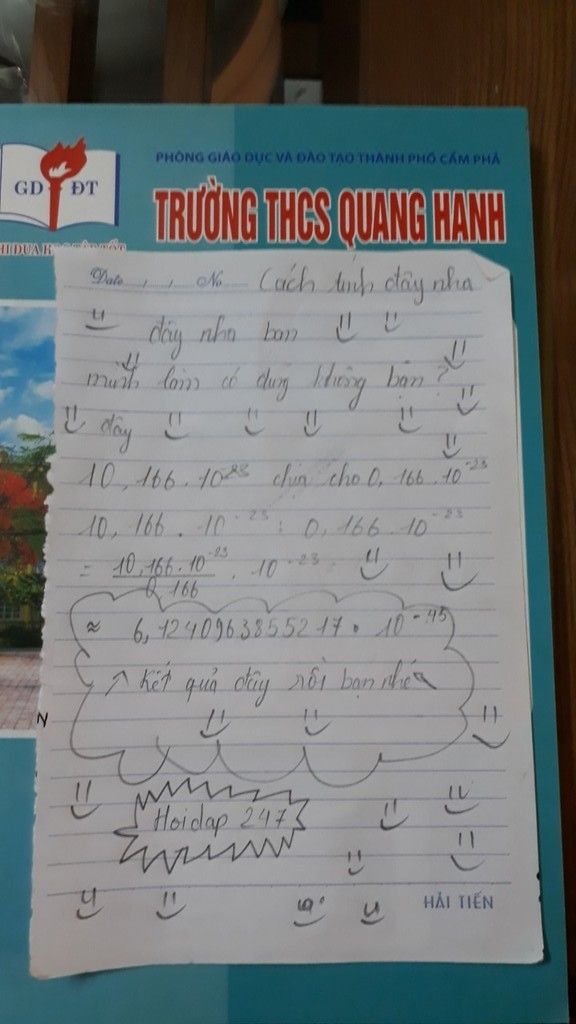 PHÒNG GIÁO DỤC VÀ ĐÀO TẠO THÀNH PHỐ CẨM PHẢ
GD ĐT
TRƯỜNG THCS QUANG HANH
Date , , No Cách tính đây nha
đây nha bạn
mình làm có đúng không bạn?
đây
10,166.10⁻²³ chia cho 0,166.10⁻²³
10,166.10⁻²³ : 0,166.10⁻²³
= 10,166.10⁻²³ / 0,166 . 10⁻²³
≈ 6,1240963855217.10⁻⁴⁵
Kết quả đây rồi bạn nhé
N
Hoidap 247
HẢI TIẾN